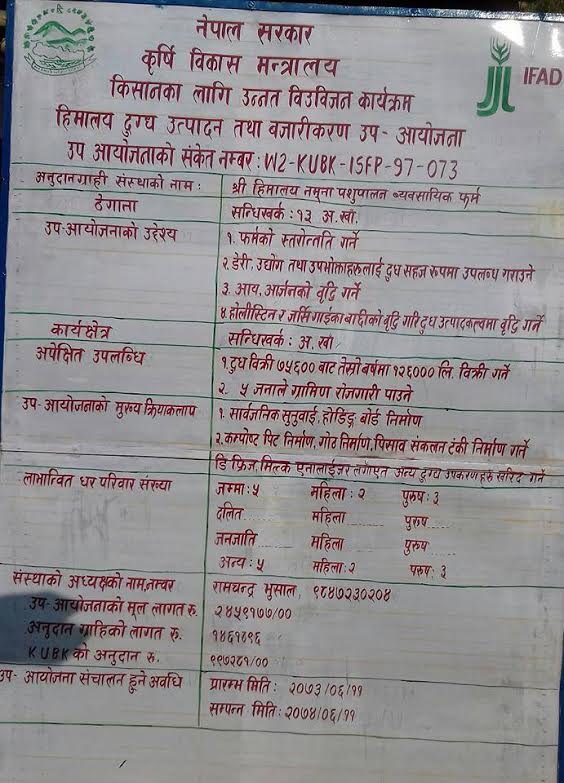 नेपाल सरकार
कृषि विकास मन्त्रालय
किसानका लागि उन्नत विउविजन कार्यक्रम
हिमालय दुग्ध उत्पादन तथा बजारीकरण उप- आयोजना
उप आयोजनाको संकेत नम्बर: W2-KUBK-ISFP-97-073
IFAD
अनुदानग्राही संस्थाको नाम: श्री हिमालय नमूना पशुपालन व्यवसायिक फर्म
ठेगाना सन्धिखर्क: १३ अ.खाँ.
उप-आयोजनाको उद्देश्य १. फर्मको स्तरोन्नति गर्ने
२. डेरी, उद्योग तथा उपभोक्ताहरुलाई दुध सहज रुपमा उपलब्ध गराउने
३. आय.आर्जनको वृद्धि गर्ने
४. होलीस्टिन र जर्सि गाईका बाछीको वृद्धि गरि दुध उत्पादकत्वमा वृद्धि गर्ने
कार्यक्षेत्र सन्धिखर्क: अ.खाँ
अपेक्षित उपलब्धि १. दुध विक्री ७५६०० बाट तेस्रो बर्षमा १२६००० लि. विक्री गर्ने
२. ५ जनाले ग्रामिण रोजगारी पाउने
उप-आयोजनाको मुख्य क्रियाकलाप १. सार्वजनिक सुनुवाई, होर्डिङ्ग बोर्ड निर्माण
२. कम्पोष्ट पिट निर्माण, गोठ निर्माण, पिसाव संकलन टंकी निर्माण गर्ने
डि फ्रिज, मिल्क एनालाईजर लगाएत अन्य दुग्ध उपकरणहरु खरिद गर्ने
लाभान्वित घर परिवार संख्या जम्मा: ५ महिला: २ पुरुष: ३
दलित महिला पुरुष
जनजाति महिला पुरुष
अन्य: ५ महिला: २ पुरुष: ३
संस्थाको अध्यक्षको नाम, नम्बर रामचन्द्र भुसाल, ९८४७२३०२०४
उप-आयोजनाको मूल लागत रु. २४५९१७७/००
अनुदान ग्राहिको लागत रु. १४६१८९६
KUBK को अनुदान रु. ९९७२८१/००
उप- आयोजना संचालन हुने अवधि प्रारम्भ मिति: २०७३/०६/११
सम्पन्त मिति: २०७४/०६/११